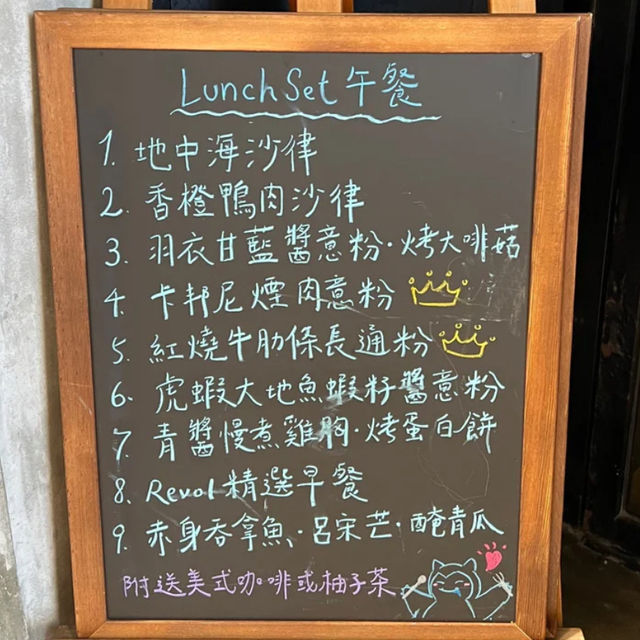 Lunch Set 午餐
1. 地中海沙律
2. 香橙鴨肉沙律
3. 羽衣甘藍醬意粉·烤大啡菇
4. 卡邦尼煙肉意粉
5. 紅燒牛肋條長通粉
6. 虎蝦大地魚蝦籽醬意粉
7. 青醬慢煮雞胸·烤蛋白餅
8. Revol 精選早餐
9. 赤身吞拿魚·呂宋芒·醃青瓜
附送美式咖啡或柚子茶